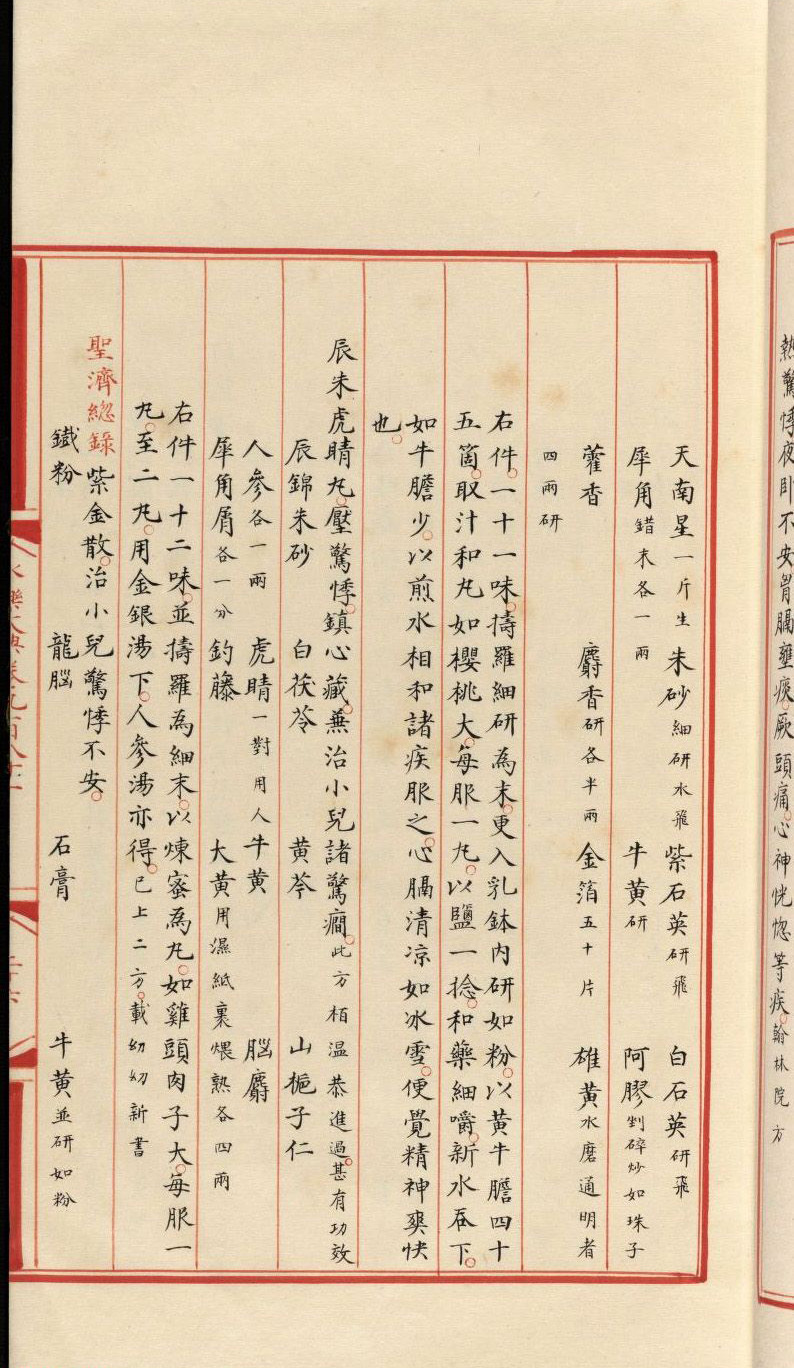 熱驚悸夜卧不安胷膈壅痰厥頭痛心神恍惚等疾翰林院方
天南星一斤生 朱砂細研水飛 紫石英研飛 白石英研飛
犀角錯末各一兩 牛黄研 阿膠剉碎炒如珠子
藿香 麝香研各半兩 金箔五十片 雄黄水磨通明者
四兩研
右件一十一味擣羅細研為末更入乳鉢内研如粉以黄牛膽四十
五箇取汁和丸如櫻桃大每服一丸以鹽一捻和藥細嚼新水吞下
如牛膽少以煎水相和諸疾服之心膈清凉如冰雪便覺精神爽快
也
辰朱虎睛丸壓驚悸鎮心藏兼治小兒諸驚癇此方栢温恭進過甚有功效
辰錦朱砂 白茯苓 黄芩 山梔子仁
人參各一兩 虎睛一對用人牛黄 腦麝
犀角屑各一分 釣藤 大黄用濕紙裹煨熟各四兩
右件一十二味並擣羅為細末以煉蜜為丸如雞頭肉子大每服一
丸至二丸用金銀湯下人參湯亦得已上二方載幼幼新書
聖濟總錄紫金散治小兒驚悸不安
鐵粉 龍腦 石膏 牛黄並研如粉